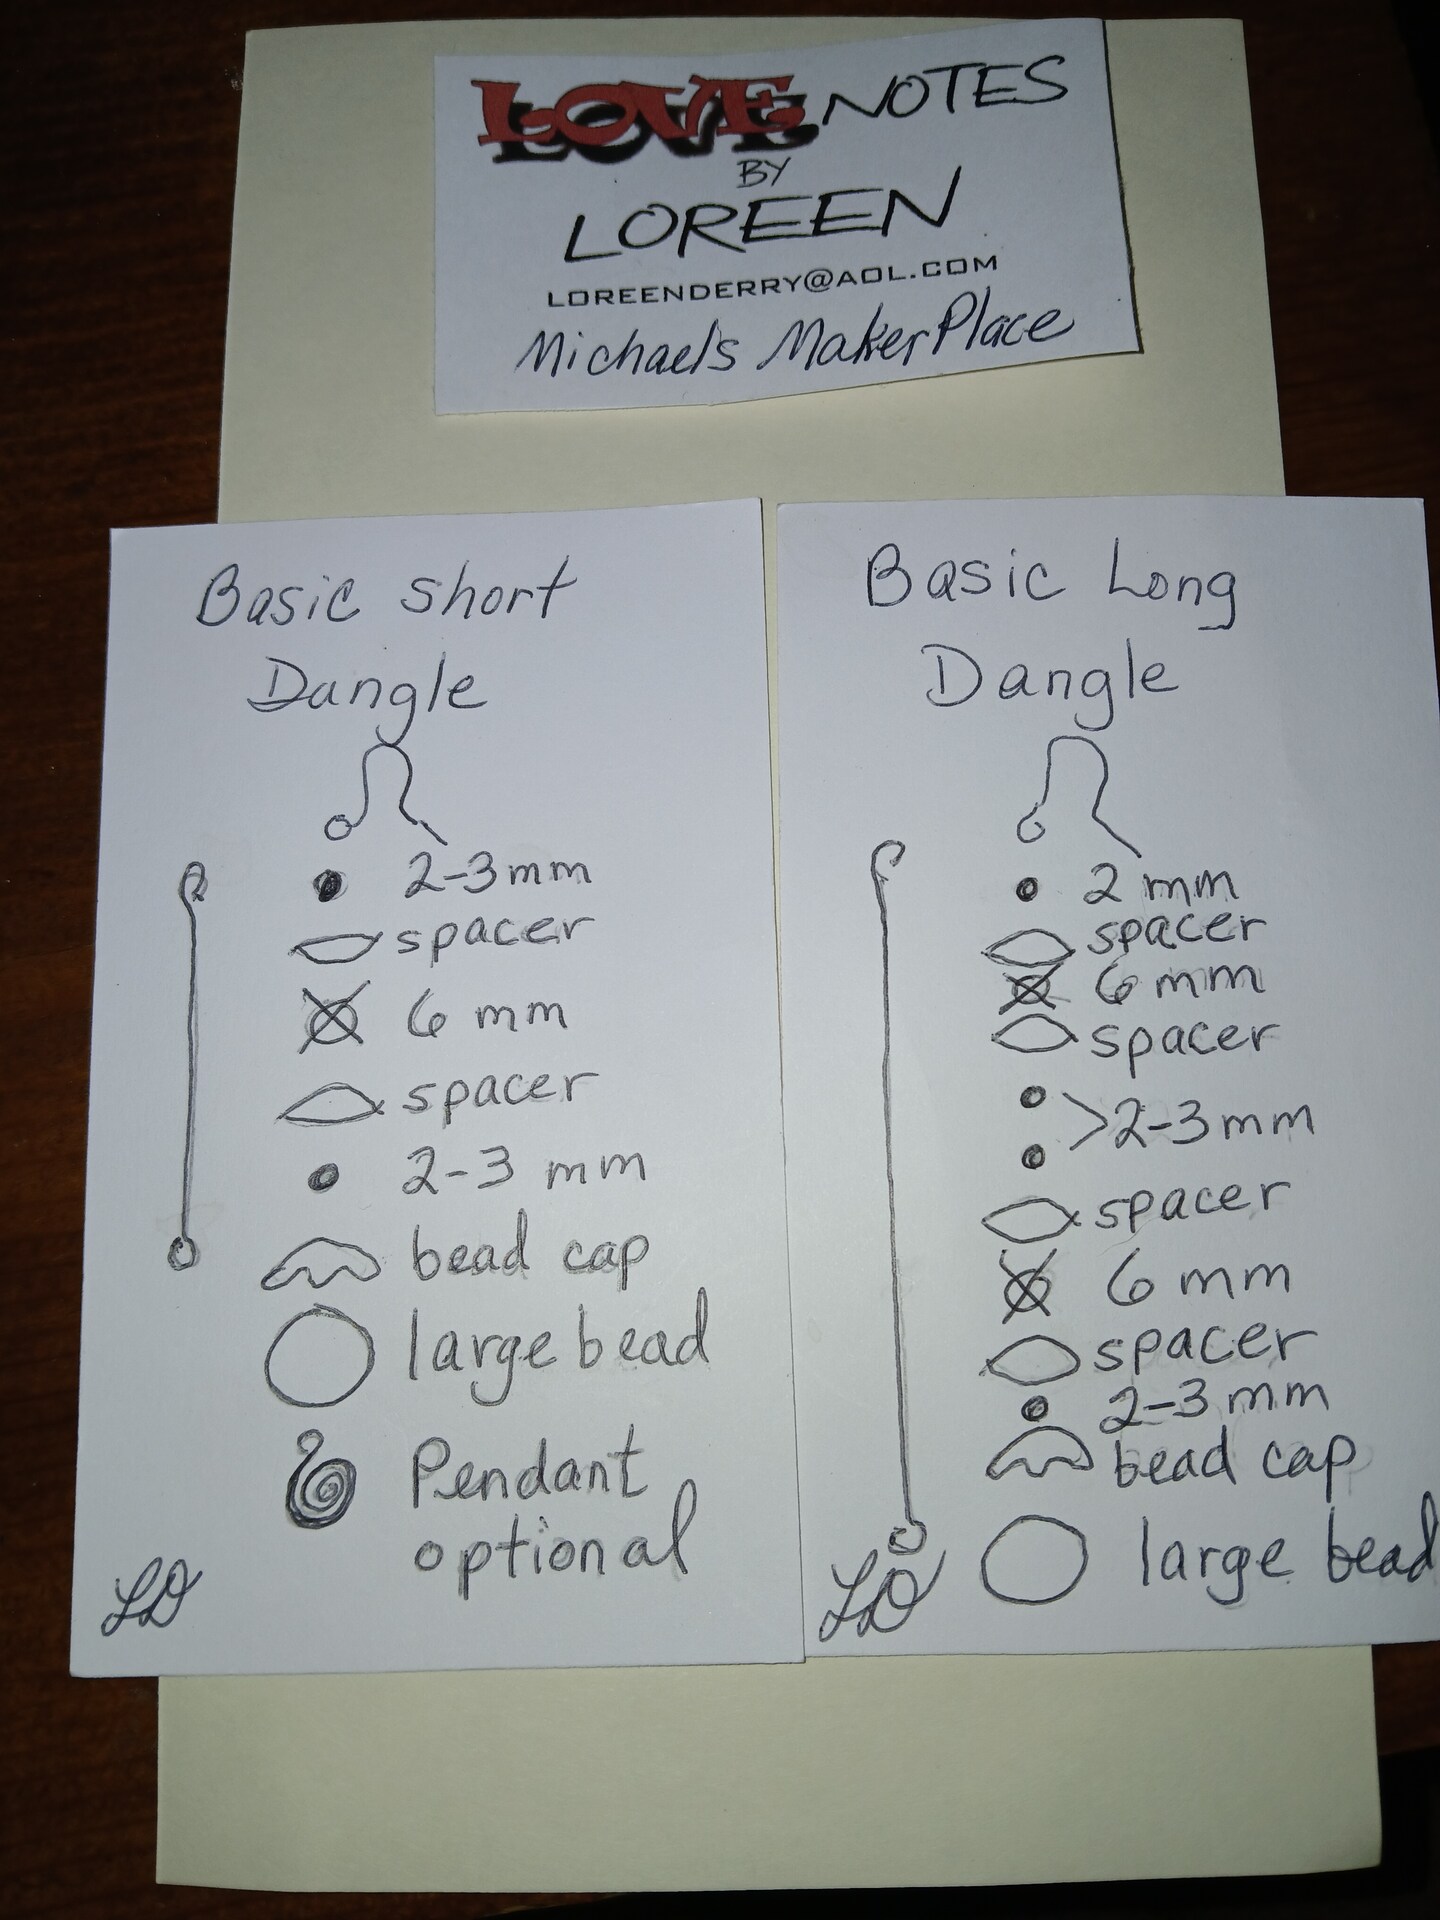 LOVE NOTES
BY
LOREEN
LOREENDERRY@AOL.COM
Michaels MakerPlace
Basic short
Dangle
2-3mm
spacer
6 mm
spacer
2-3 mm
bead cap
large bead
Pendant
optional
LD
Basic Long
Dangle
2 mm
spacer
6 mm
spacer
>2-3mm
spacer
6 mm
spacer
2-3mm
bead cap
large bead
LD